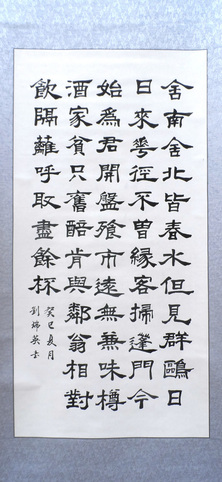 舍南舍北皆春水但見群鷗日
日來華徑不曾緣客掃蓬門今
始爲君開盤飧市遠無兼味樽
酒家貧只舊醅肯與鄰翁相對
飲隔蘺呼取盡餘杯
癸巳夏月
劉瑞英书